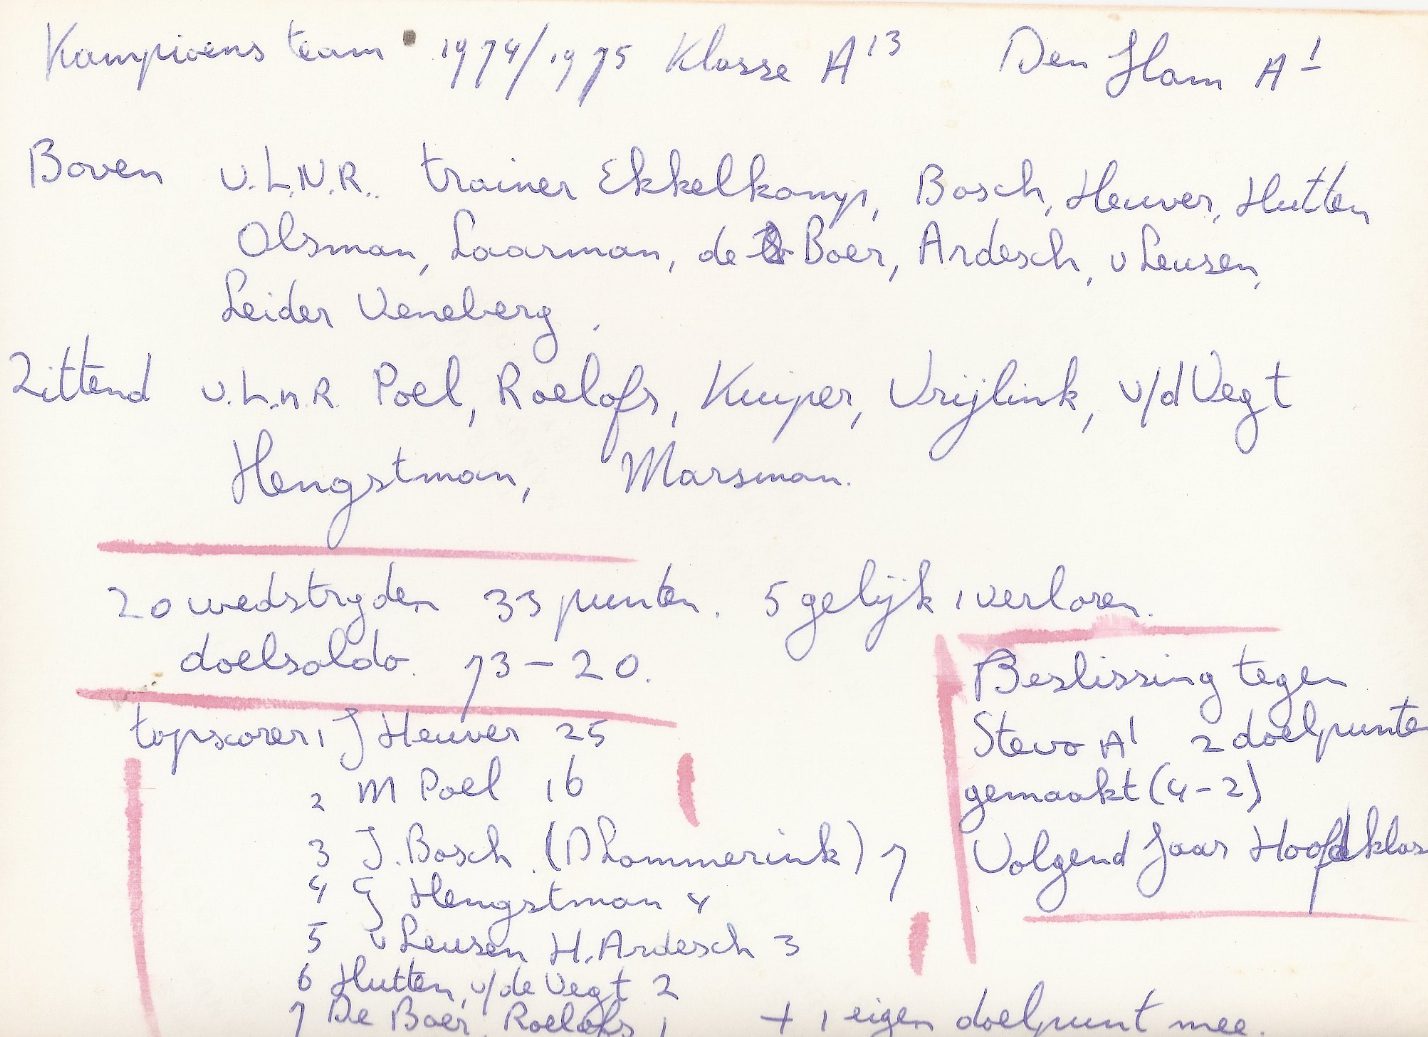 Kampioens team 1974/1975 Klasse A13 Den Ham A1
Boven v.L.N.R. trainer Ekkelkamp, Bosch, Heuver, Hutten
Olsman, Laarman, de Boer, Ardesch, v Leusen,
Leider Veneberg.
Zittend v.L.n.R. Poel, Roelofs, Kuiper, Vrijlink, v/d Vegt
Hengstman, Marsman.
20 wedstryden 33 punten. 5 gelijk 1 verloren.
doelsaldo. 73-20.
topscorer 1 J Heuver 25
2 M Poel 16
3 J. Bosch (D Lammerink) 7
4 G Hengstman 4
5 v Leusen H. Ardesch 3
6 Hutten, v/de Vegt 2
7 De Boer, Roelofs 1 + 1 eigen doelpunt mee.
Beslissing tegen
Stevo A1 2 doelpunte
gemaakt (4-2)
Volgend Jaar Hoofdklas